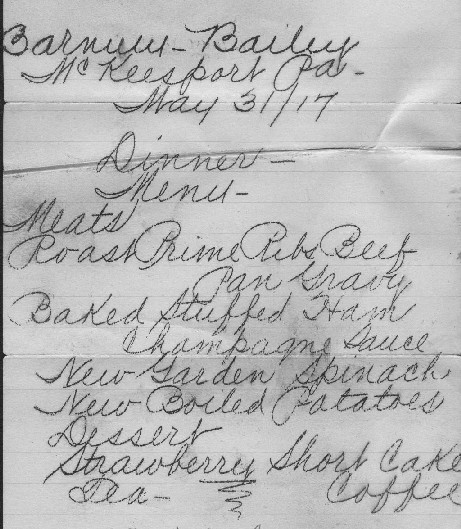 Barnum - Bailey
McKeesport Pa -
May 31/17
Dinner -
Menu -
Meats
Roast Prime Ribs Beef
Pan Gravy
Baked Stuffed Ham
Champagne Sauce
New Garden Spinach
New Boiled Potatoes
Dessert
Strawberry Short Cake
Tea - Coffee